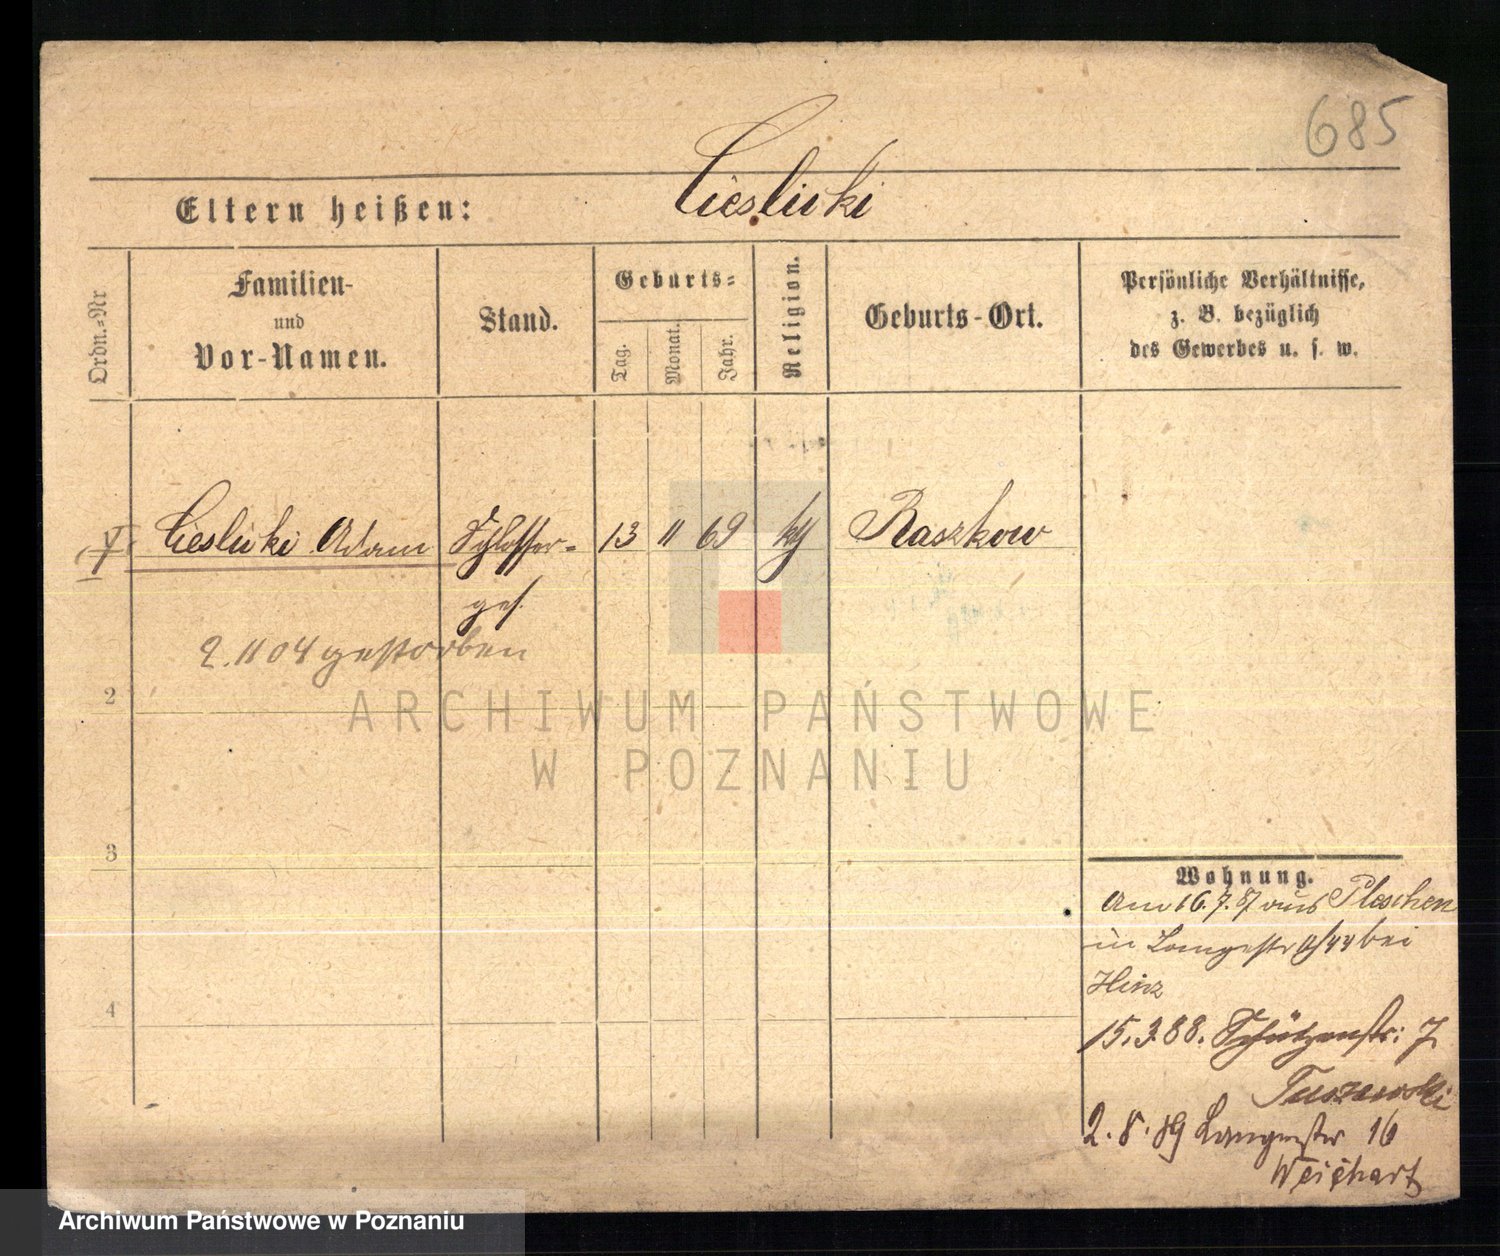 685
Cieslicki
Eltern heißen:
Ordn.=Nr
Familien-
und
Vor-Namen.
Stand.
Geburts=
Tag.
Monat.
Jahr.
Religion.
Geburts-Ort.
Persönliche Verhältnisse,
z. B. bezüglich
des Gewerbes u. s. w.
Cieslicki Adam Schlosser= 13 11 69 kth Raszkow
ges.
2. 11 04 gestorben
2
ARCHIWUM PAŃSTWOWE
W POZNANIU
3
Wohnung.
Am 16.7.87 aus Pleschen
in Langestr bei
Hinz
4
15.3.88. Schützenstr: 7
Tuszewski
2.8.89 Langestr 16
Weichart
Archiwum Państwowe w Poznaniu